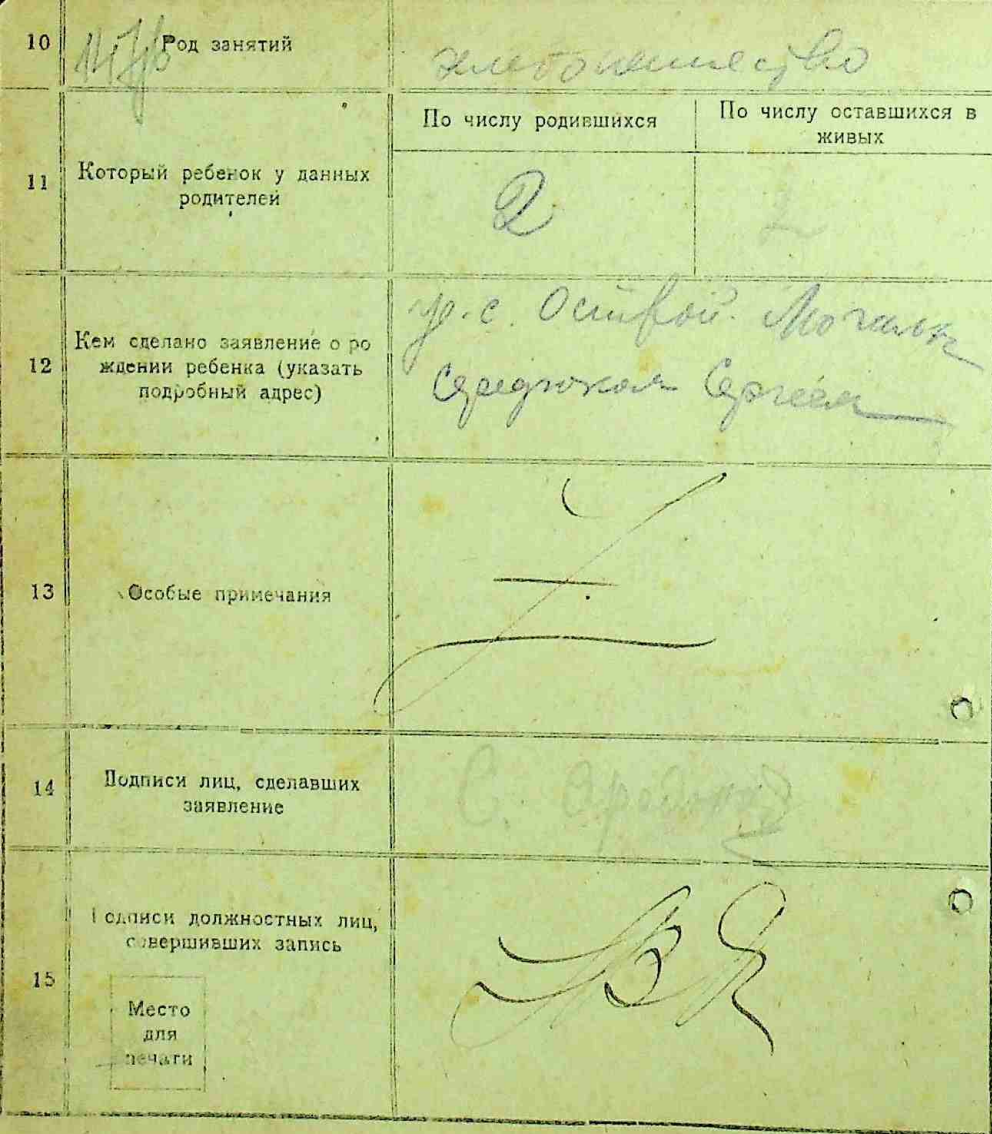 10 Род занятий хлебопашество
По числу родившихся По числу оставшихся в
живых
11 Который ребенок у данных
родителей
2 2
с. Острой Могилы
12 Кем сделано заявление о ро
ждении ребенка (указать
подробный адрес)
Сергеем
13 Особые примечания
14 Подписи лиц, сделавших
заявление
С.
15 Подписи должностных лиц,
совершивших запись
Место
для
печати